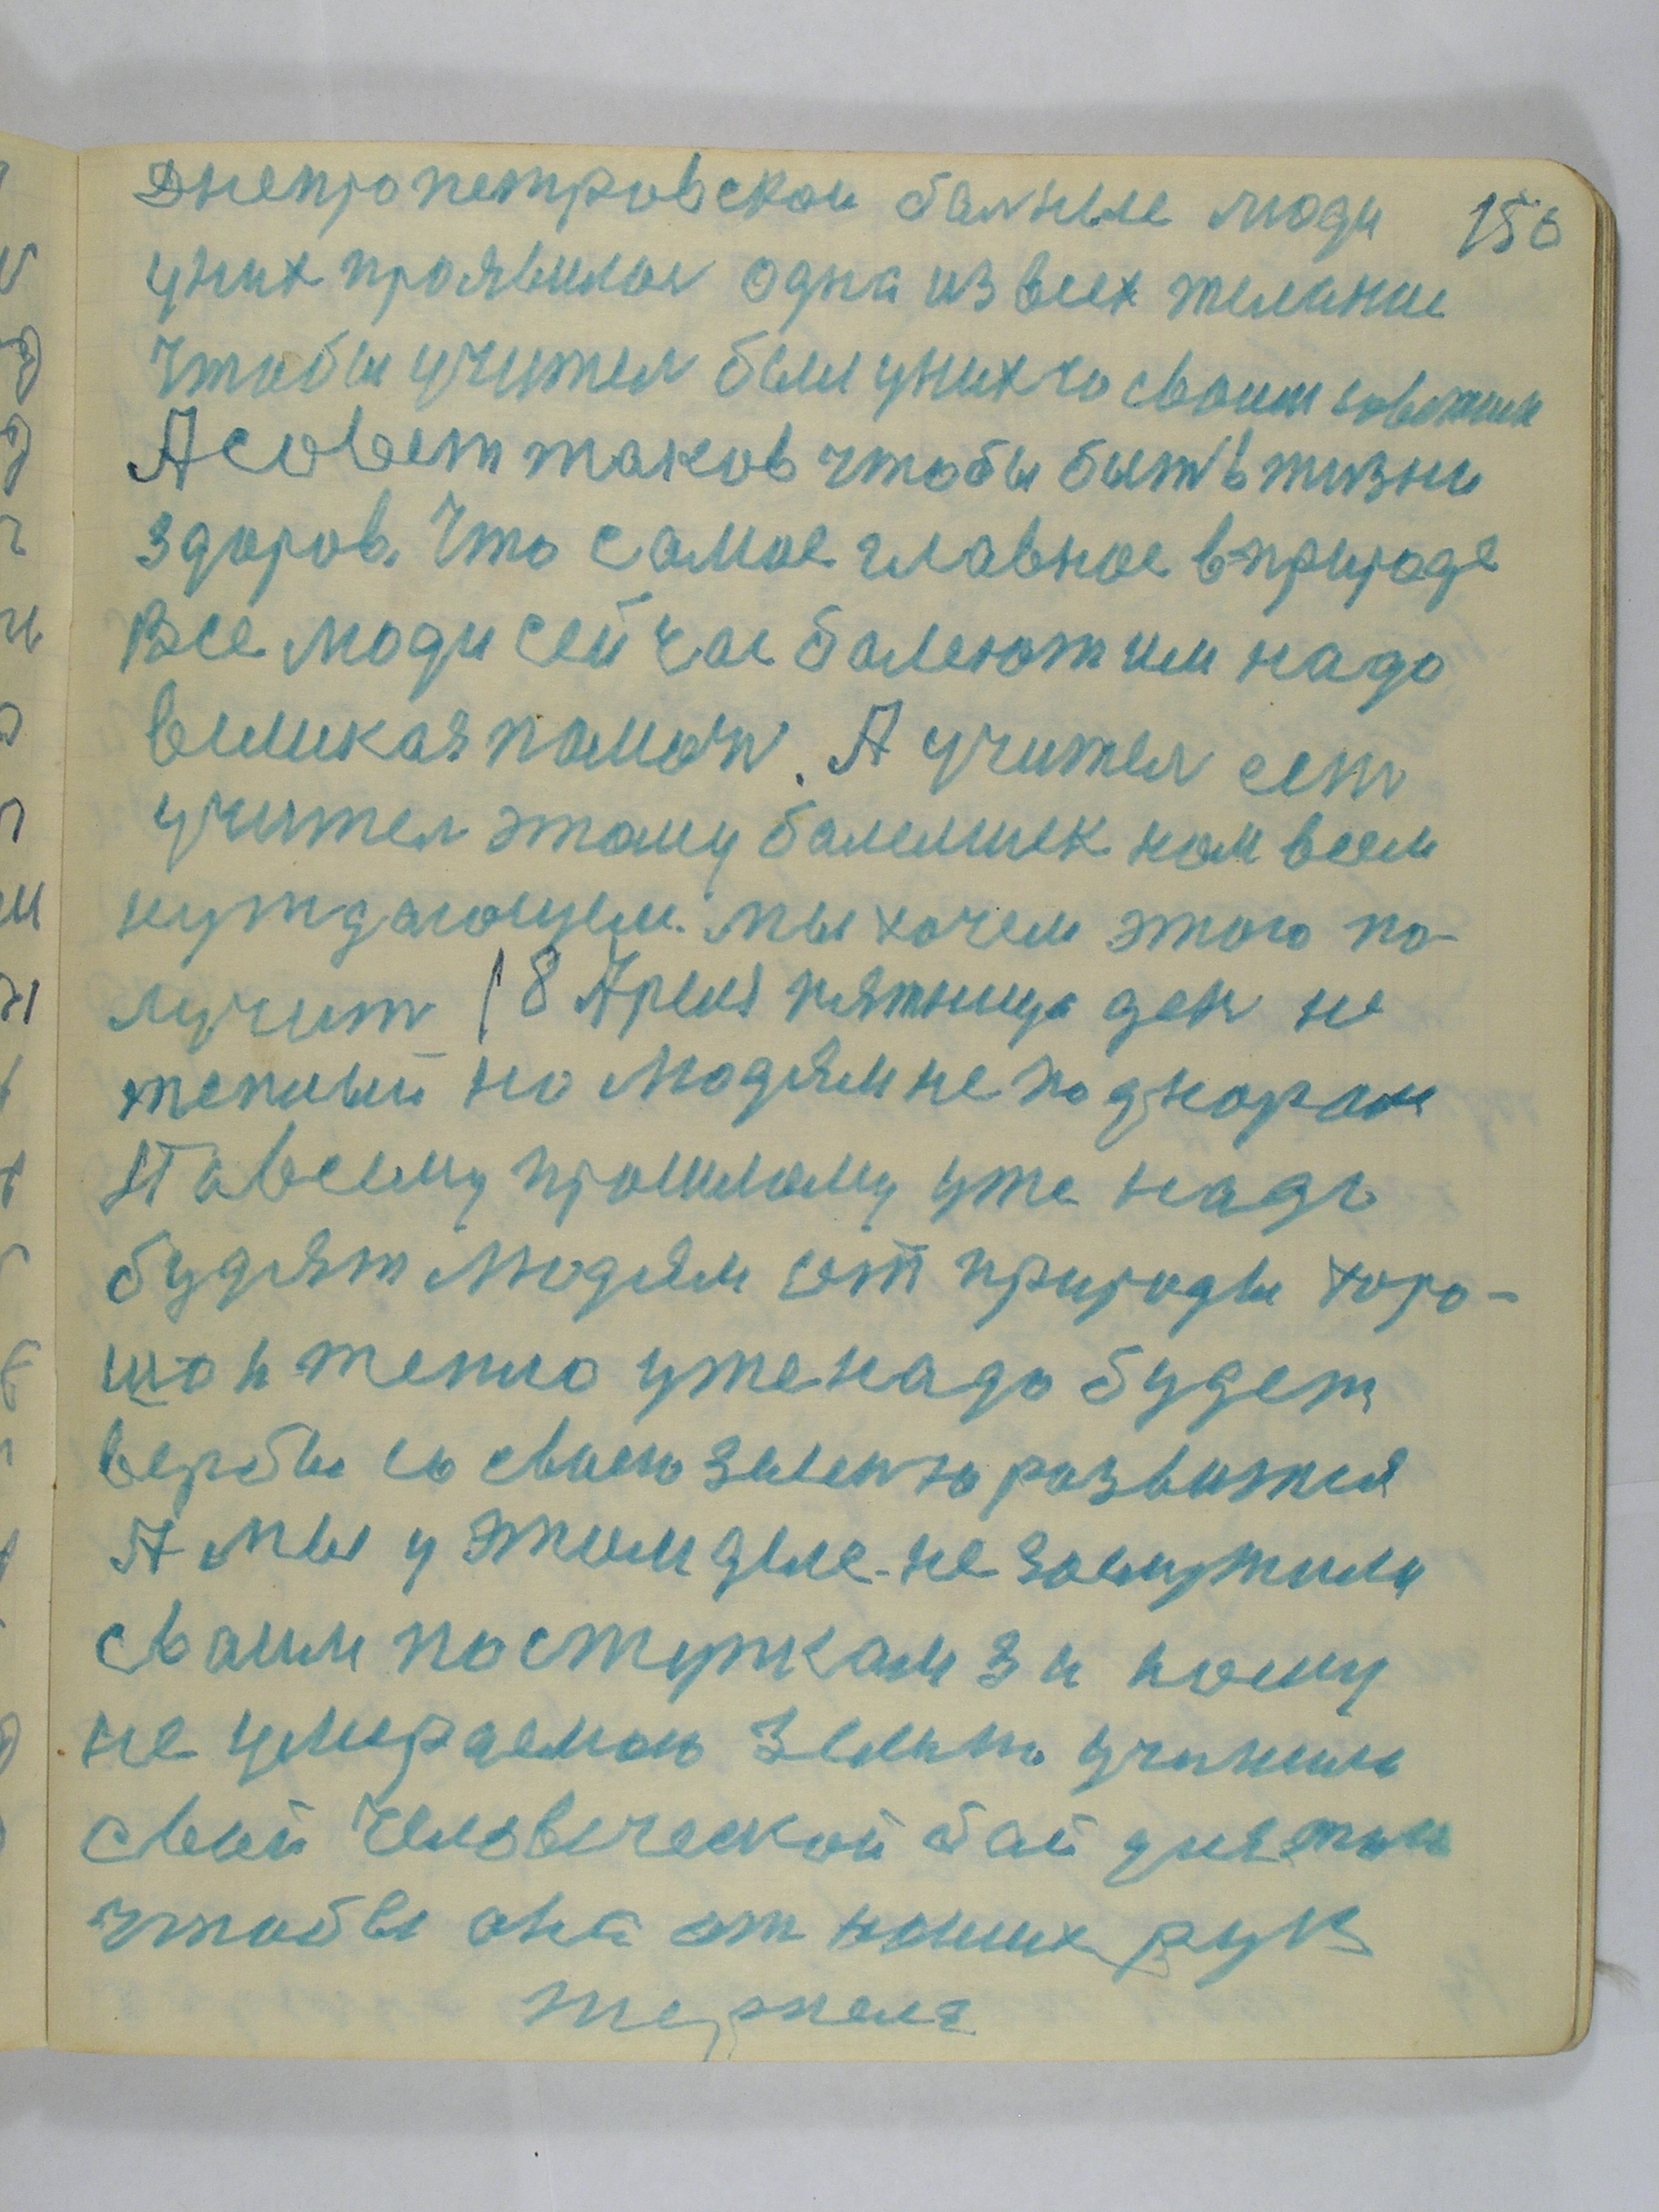 Днепропетровскои балные люди 156
уних проявилос одна из всех желание
Чтобы учител был уних со своим советим
А совет таков чтобы быть в жизни
здоров. Что самое главное в природе
Все люди сейчас балеют им надо
великая помоч. А учител ест
учител этому нам всем
нуждающем. мы хочем этого по-
лучит 18 Апреля пятница ден не
теплый но людям не
Павсему прошлому уже надо
будят людям от природы хоро-
шо и тепло уже надо будет
вербы со своею зеленю развится
А мы у этим деле не заслужили
своим поступкам за
не умираемою Землю учинили
свой Человеческой бой
чтобы она от наших рук
терпела